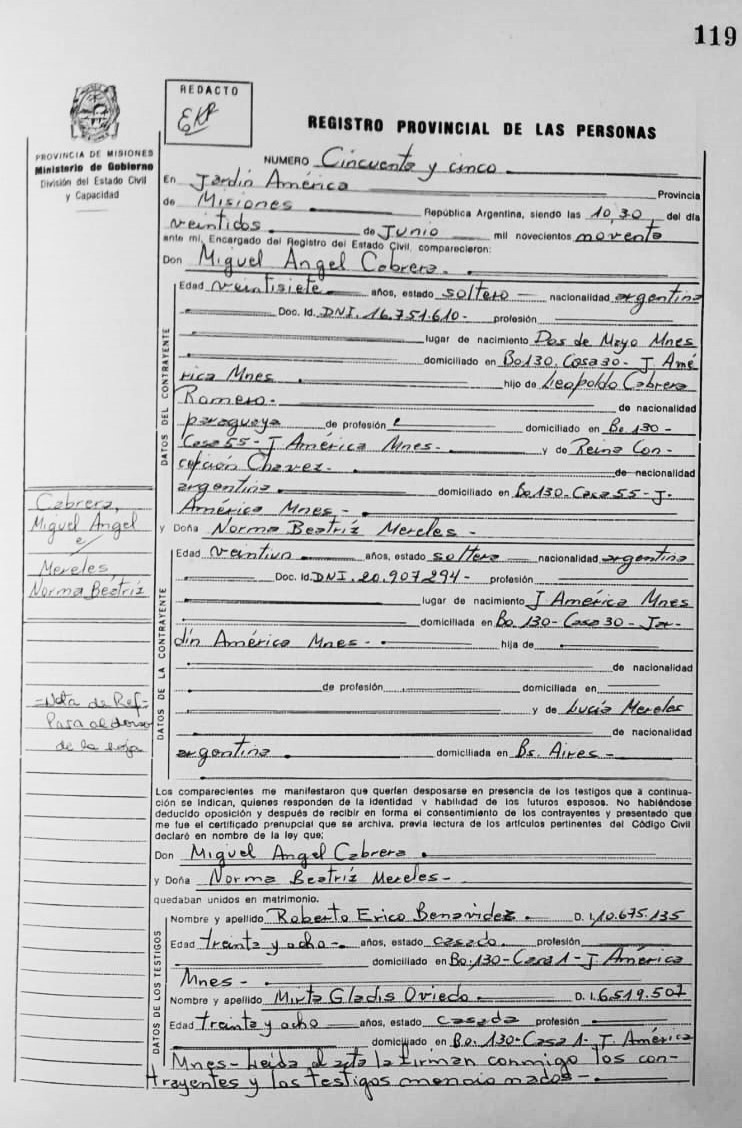 119
REDACTO
REGISTRO PROVINCIAL DE LAS PERSONAS
PROVINCIA DE MISIONES
Ministerio de Gobierno
División del Estado Civil
y Capacidad
NUMERO Cincuenta y cinco
En Jardín América Provincia
de Misiones República Argentina, siendo las 10,30 del día
veintidos de Junio mil novecientos noventa
ante mí, Encargado del Registro del Estado Civil, comparecieron:
Don Miguel Angel Cabrera.
DATOS DEL CONTRAYENTE
Edad veintisiete años, estado soltero nacionalidad argentina
Doc. Id. DNI. 16.751.610- profesión
lugar de nacimiento Dos de Mayo Mnes
domiciliado en Bo130, Casa 30- J. Amé
rica Mnes hijo de Leopoldo Cabrera
Romero.- de nacionalidad
paraguaya de profesión domiciliado en Bo.130-
Casa 55- J América Mnes.- y de Reina Con-
cepción Chavez.- de nacionalidad
argentina domiciliado en Bo130-Casa 55-J.
América Mnes -
y Doña Norma Beatríz Mereles -
DATOS DE LA CONTRAYENTE
Edad veintiun años, estado soltera nacionalidad argentina
Doc. Id. DNI. 20.907294- profesión
lugar de nacimiento J América Mnes
domiciliada en Bo. 130- Casa 30- Jar-
dín América Mnes - hija de
de nacionalidad
de profesión domiciliada en
y de Lucía Mereles
de nacionalidad
argentina domiciliada en Bs. Aires -
Cabrera,
Miguel Angel
Mereles,
Norma Beatríz
=Nota de Ref=
Pasa al dorso
de la hoja
Los comparecientes me manifestaron que querían desposarse en presencia de los testigos que a continua-
ción se indican, quienes responden de la identidad y habilidad de los futuros esposos. No habiéndose
deducido oposición y después de recibir en forma el consentimiento de los contrayentes y presentado que
me fue el certificado prenupcial que se archiva, previa lectura de los artículos pertinentes del Código Civil
declaró en nombre de la ley que:
Don Miguel Angel Cabrera
y Doña Norma Beatríz Mereles-
quedaban unidos en matrimonio.
DATOS DE LOS TESTIGOS
Nombre y apellido Roberto Erico Benavidez D. I. 10.675.135
Edad treinta y ocho - años, estado casado. profesión
domiciliado en Bo.130-Casa 1- J América
Mnes -
Nombre y apellido Mirta Gladis Oviedo D. I. 6.519.507
Edad treinta y ocho años, estado casada profesión
domiciliado en Bo. 130-Casa 1- J. América
Mnes- Leída el acta la firman conmigo los con-
trayentes y los testigos mencionados -